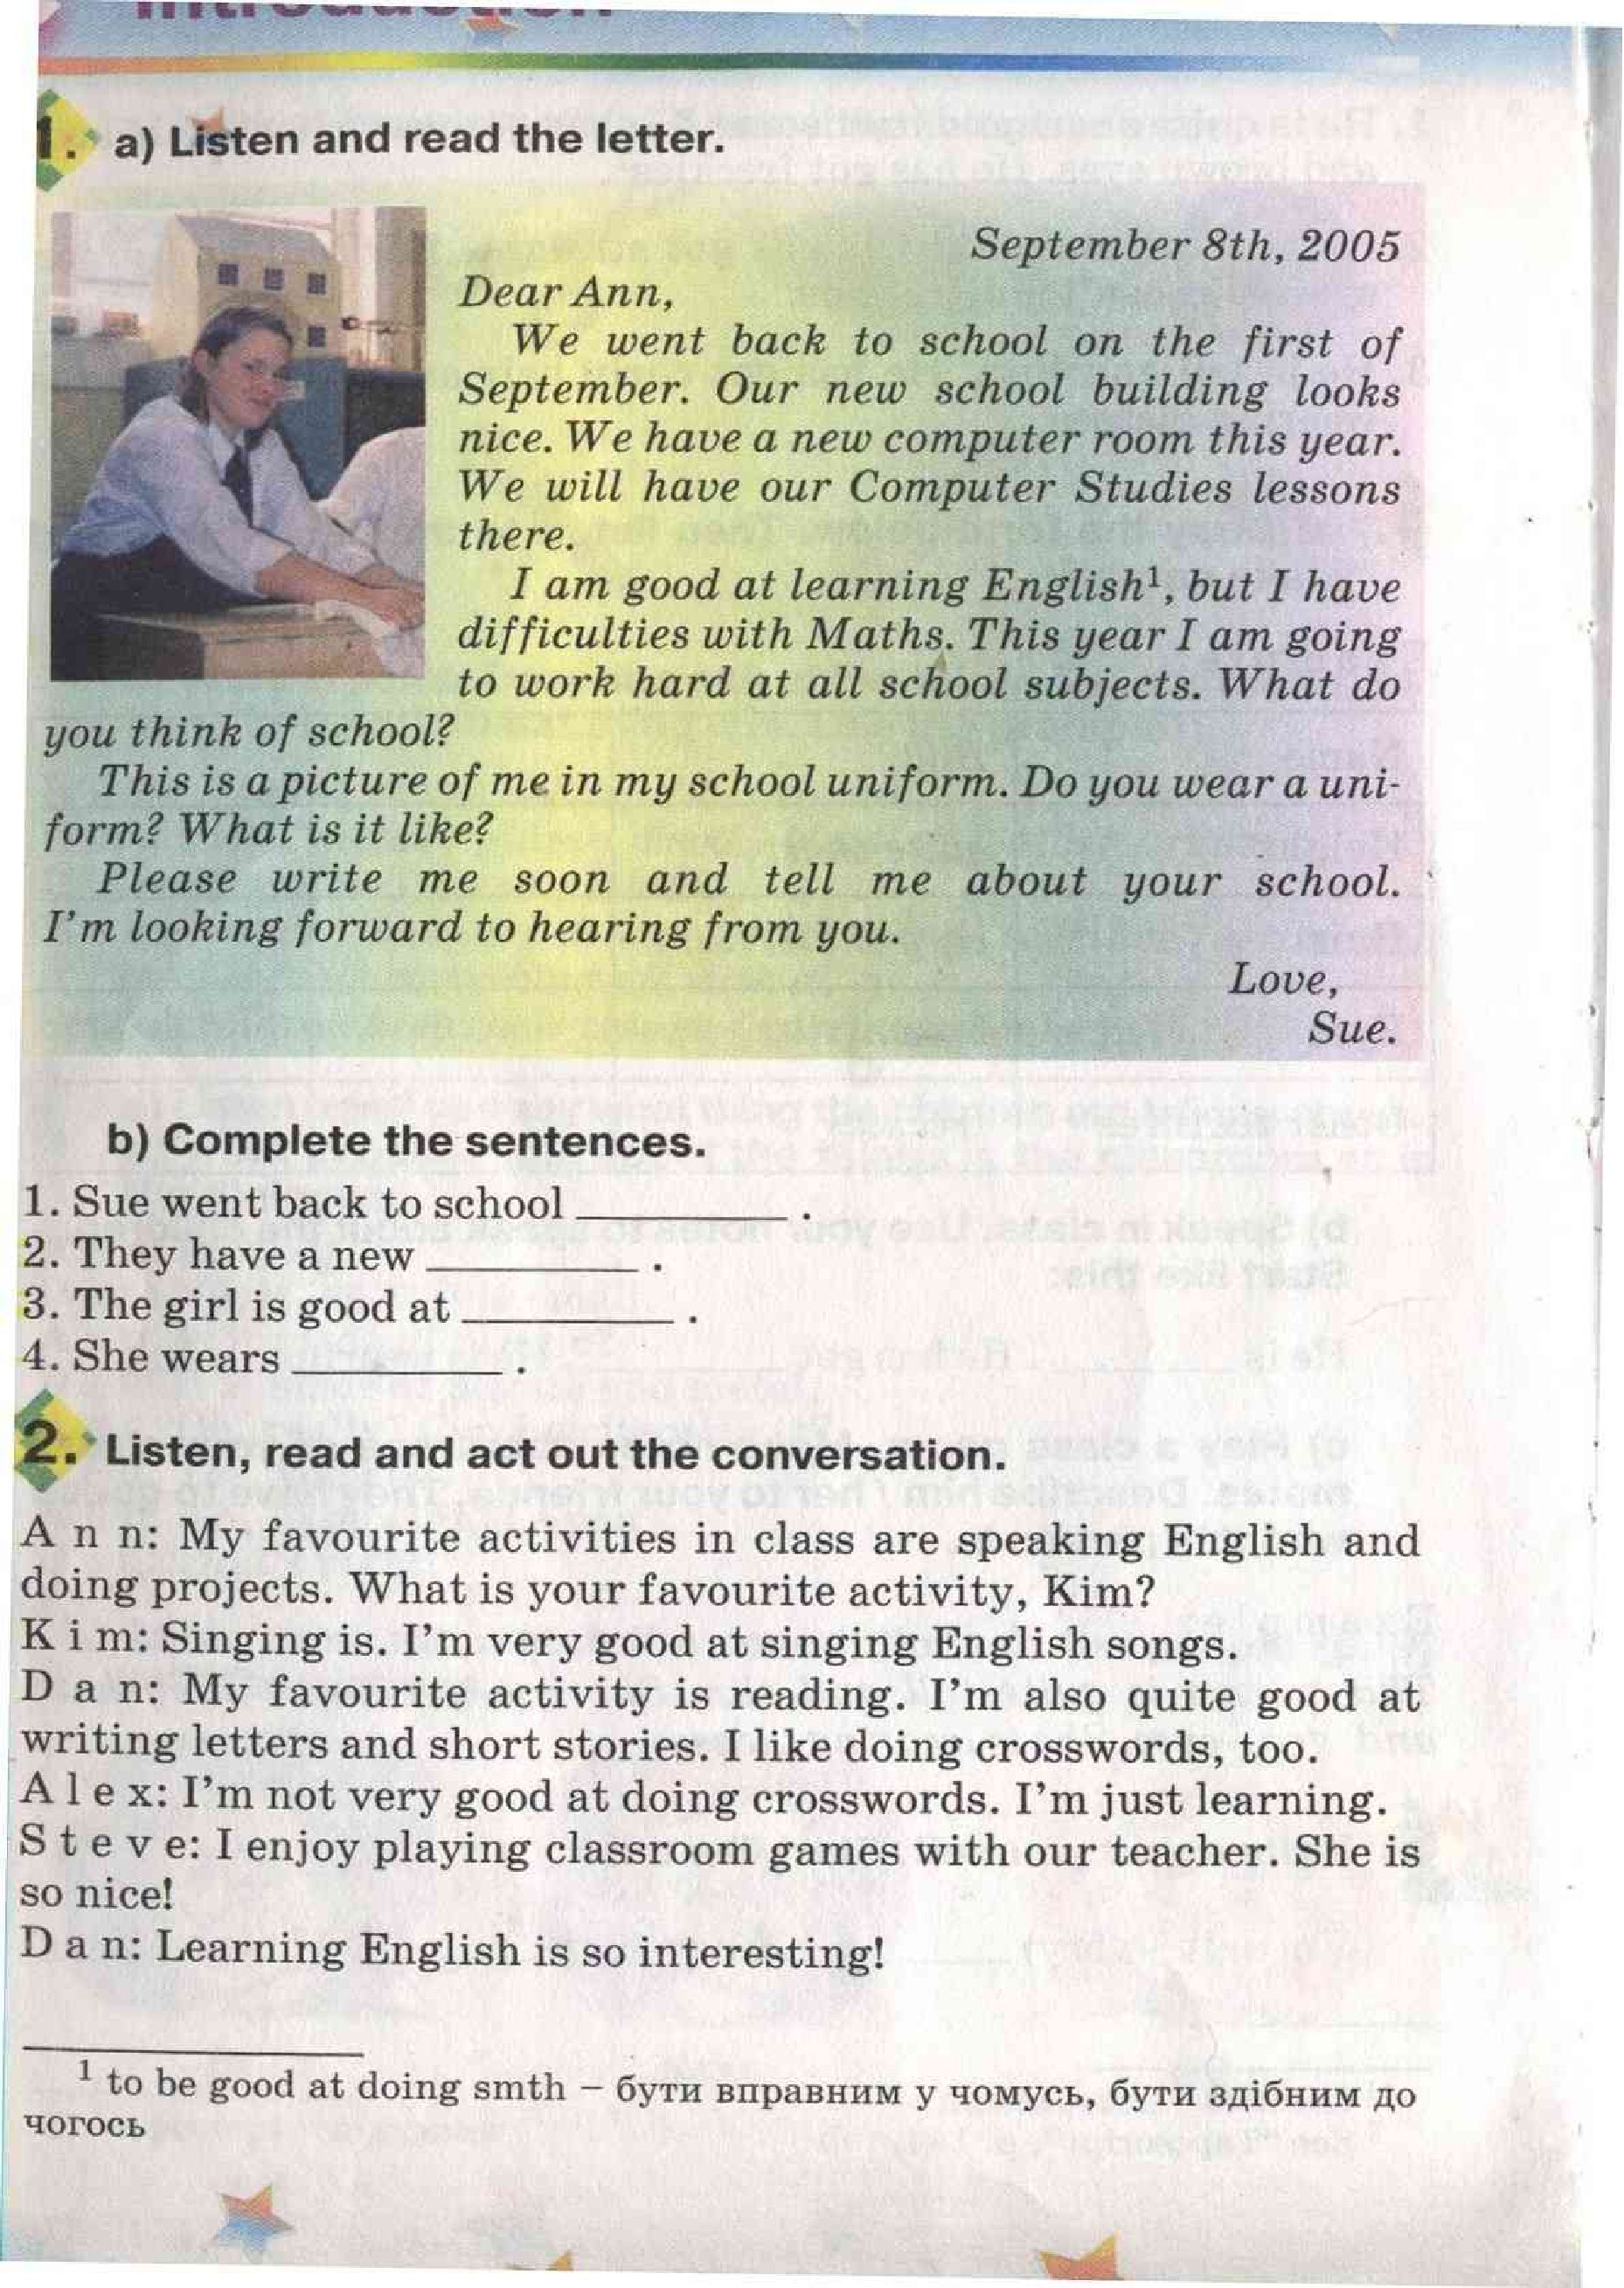 Introduction
1. a) Listen and read the letter.
September 8th, 2005
Dear Ann,
We went back to school on the first of
September. Our new school building looks
nice. We have a new computer room this year.
We will have our Computer Studies lessons
there.
I am good at learning English¹, but I have
difficulties with Maths. This year I am going
to work hard at all school subjects. What do
you think of school?
This is a picture of me in my school uniform. Do you wear a uni-
form? What is it like?
Please write me soon and tell me about your school.
I'm looking forward to hearing from you.
Love,
Sue.
b) Complete the sentences.
1. Sue went back to school __________ .
2. They have a new __________ .
3. The girl is good at __________ .
4. She wears __________ .
2. Listen, read and act out the conversation.
A n n: My favourite activities in class are speaking English and
doing projects. What is your favourite activity, Kim?
K i m: Singing is. I'm very good at singing English songs.
D a n: My favourite activity is reading. I'm also quite good at
writing letters and short stories. I like doing crosswords, too.
A l e x: I'm not very good at doing crosswords. I'm just learning.
S t e v e: I enjoy playing classroom games with our teacher. She is
so nice!
D a n: Learning English is so interesting!
¹ to be good at doing smth – бути вправним у чомусь, бути здібним до
чогось